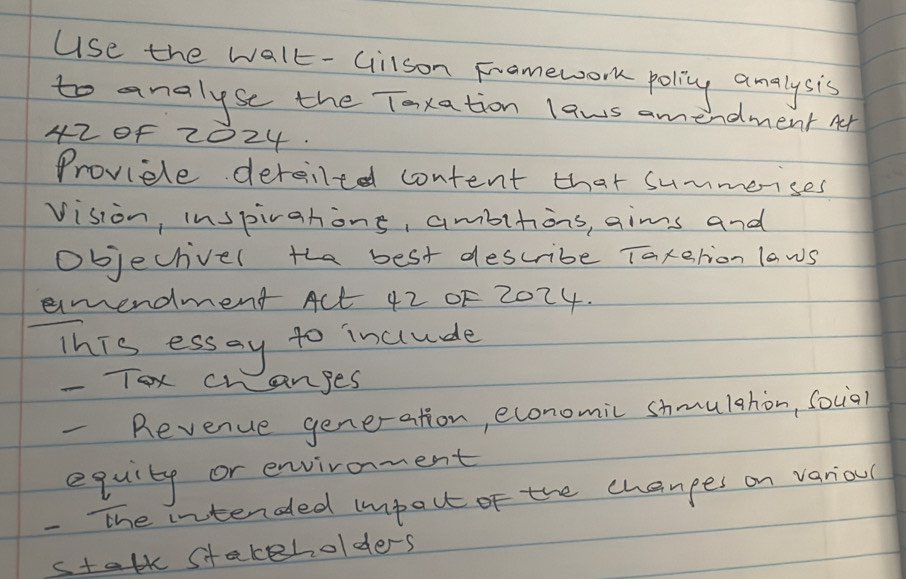 Use the Walt-Gilson Framework policy analysis
to analyse the Taxation laws amendment Act
42 OF 2024.
Provide detailed content that summerises
Vision, inspirations, ambitions, aims and
Objectives tha best describe Taxation laws
amendment Act 42 OF 2024.
This essay to include
- Tax changes
- Revenue generation, economic stimulation, social
equity or environment
- The intended impact OF the changes on various
stalk stakeholders